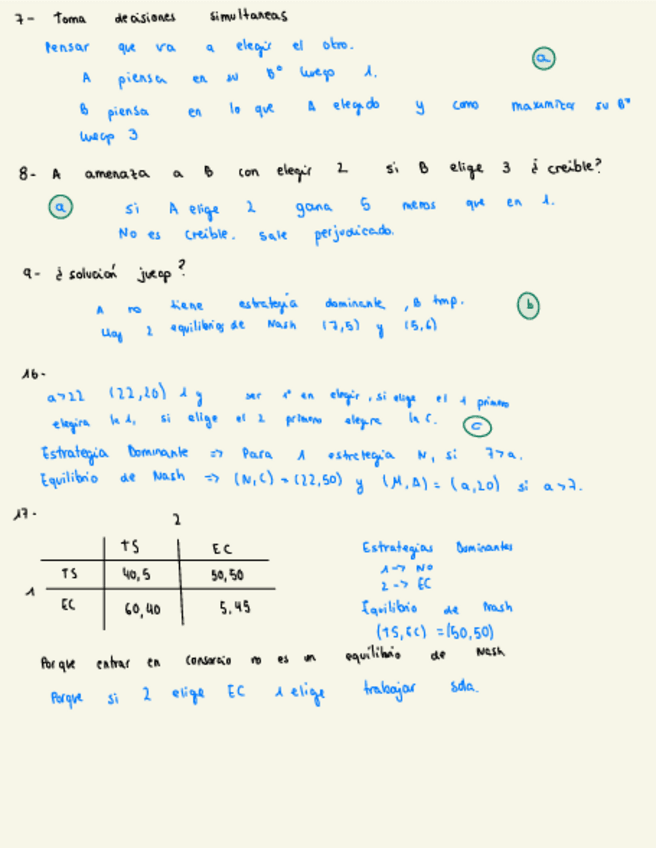 7- Toma decisiones simultaneas
Pensar que va a elegir el otro.
A piensa en su Bº luego 1.
a
B piensa en lo que A elegido y como maximizar su Bº
luego 3
8- A amenaza a B con elegir 2 si B elige 3 ¿ creible?
a si A elige 2 gana 5 menos que en 1.
No es creible. Sale perjudicado.
9- ¿ solución juego?
A no tiene estrategia dominante, B tmp.
b
Hay 2 equilibrios de Nash (7,5) y (5,6)
16-
a>22 (22,20) 1 y ser 1º en elegir, si elige el 1 primero
elegira la 1, si elige el 2 primero elegira la C. c
Estrategia Dominante => Para 1 estrategia N, si 7>a.
Equilibrio de Nash => (N,C) = (22,50) y (M,A) = (a,20) si a>7.
17-
2
TS EC
TS 40,5 50,50
1
EC 60,40 5,45
Estrategias Dominantes
1-> No
2-> EC
Equilibrio de Nash
(TS,EC) = (50,50)
Porque entrar en consorcio no es un equilibrio de Nash
Porque si 2 elige EC 1 elige trabajar sola.